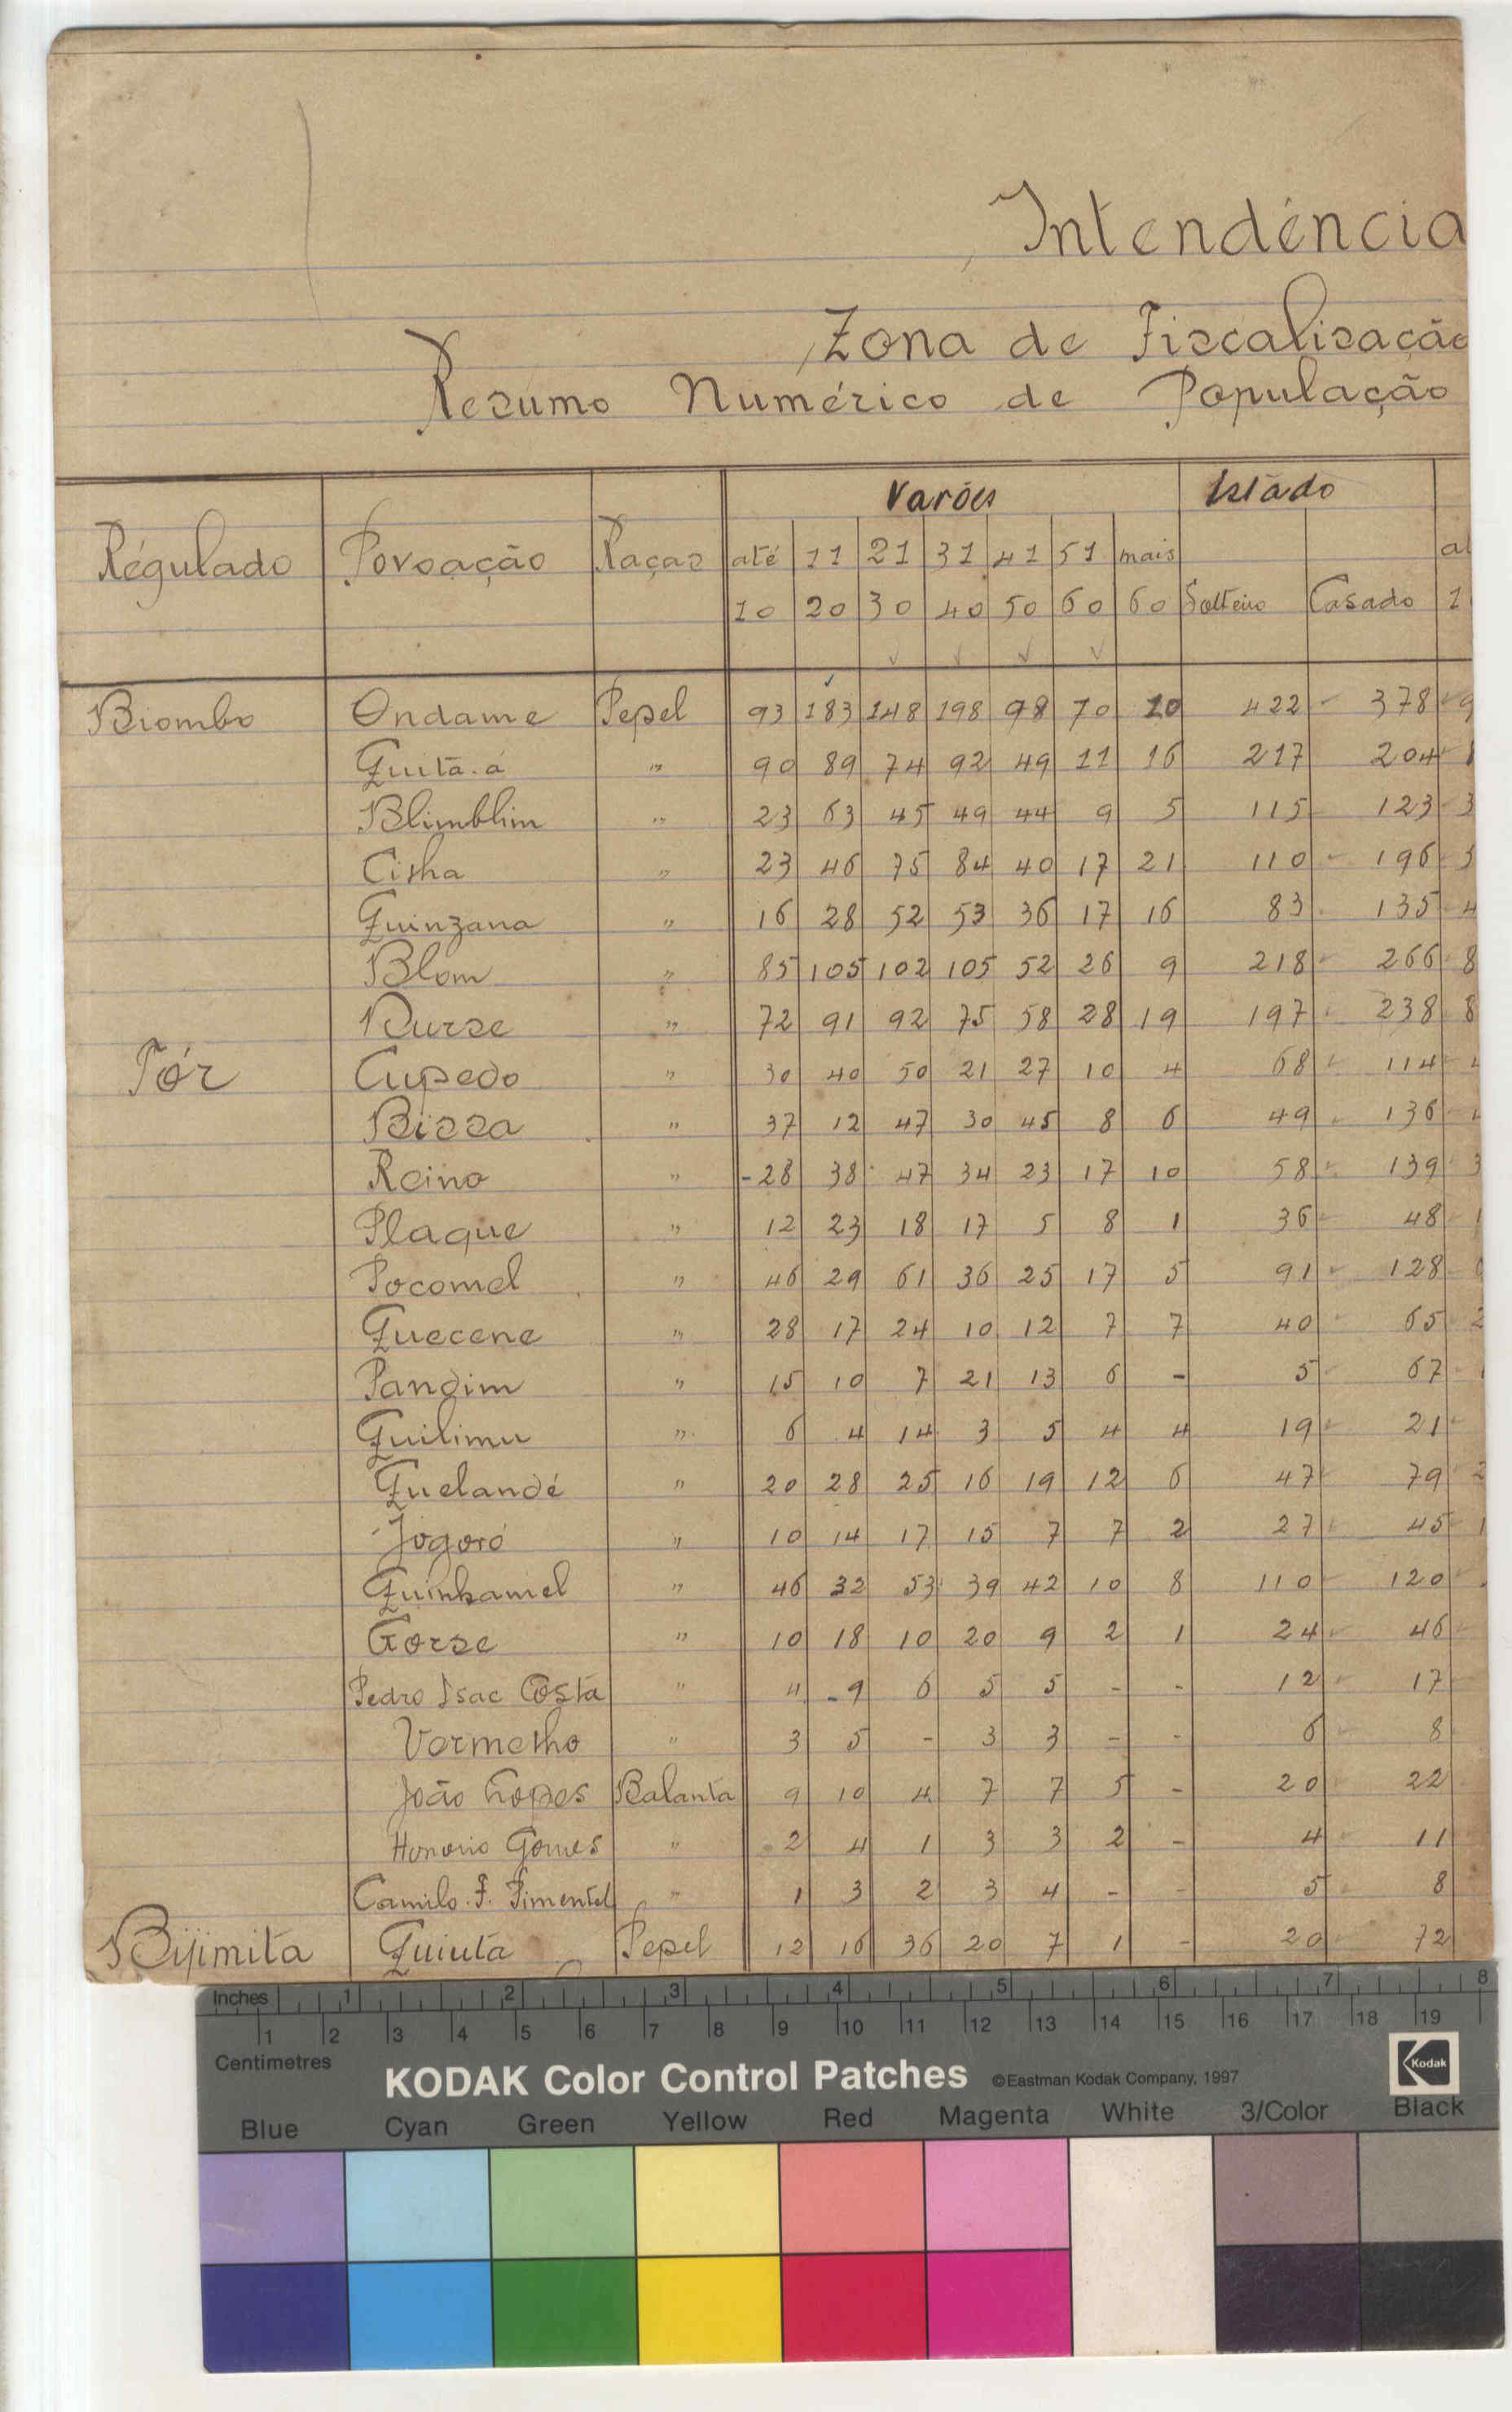 Intendência
Zona de Fiscalisação
Resumo Numérico de População
Varões Estádo
Régulado Povoação Raças até 11 21 31 41 51 mais
10 20 30 40 50 60 60 Solteiro Casado
Biombo Ondame Pepel 93 183 148 198 98 70 10 422 378
Quitá-á " 90 89 74 92 49 11 16 217 204
Blimblim " 23 63 45 49 44 9 5 115 123
Cisha " 23 46 75 84 40 17 21 110 196
Quinzana " 16 28 52 53 36 17 16 83 135
Blom " 85 105 102 105 52 26 9 218 266
Durse " 72 91 92 75 58 28 19 197 238
Tór Cupedo " 30 40 50 21 27 10 4 68 114
Bissa " 37 12 47 30 45 8 6 49 136
Reino " 28 38 47 34 23 17 10 58 139
Plaque " 12 23 18 17 5 8 1 36 48
Pocomel " 46 29 61 36 25 17 5 91 128
Quecene " 28 17 24 10 12 7 7 40 65
Pandim " 15 10 7 21 13 6 - 5 67
Quilimu " 6 4 14 3 5 4 4 19 21
Quelandé " 20 28 25 16 19 12 6 47 79
Jogoró " 10 14 17 15 7 7 2 27 45
Quinhamel " 46 32 53 39 42 10 8 110 120
Gorse " 10 18 10 20 9 2 1 24 46
Pedro Isac Costa " 4 9 6 5 5 - - 12 17
Vermelho " 3 5 - 3 3 - - 6 8
João Lopes Balanta 9 10 4 7 7 5 - 20 22
Honorio Gomes " 2 4 1 3 3 2 - 4 11
Camilo F. Pimentel " 1 3 2 3 4 - - 5 8
Bijimita Quiuta Pepel 12 16 36 20 7 1 - 20 72
Inches 1 2 3 4 5 6 7 8
1 2 3 4 5 6 7 8 9 10 11 12 13 14 15 16 17 18 19
Centimetres
KODAK Color Control Patches ©Eastman Kodak Company, 1997 Kodak
Blue Cyan Green Yellow Red Magenta White 3/Color Black